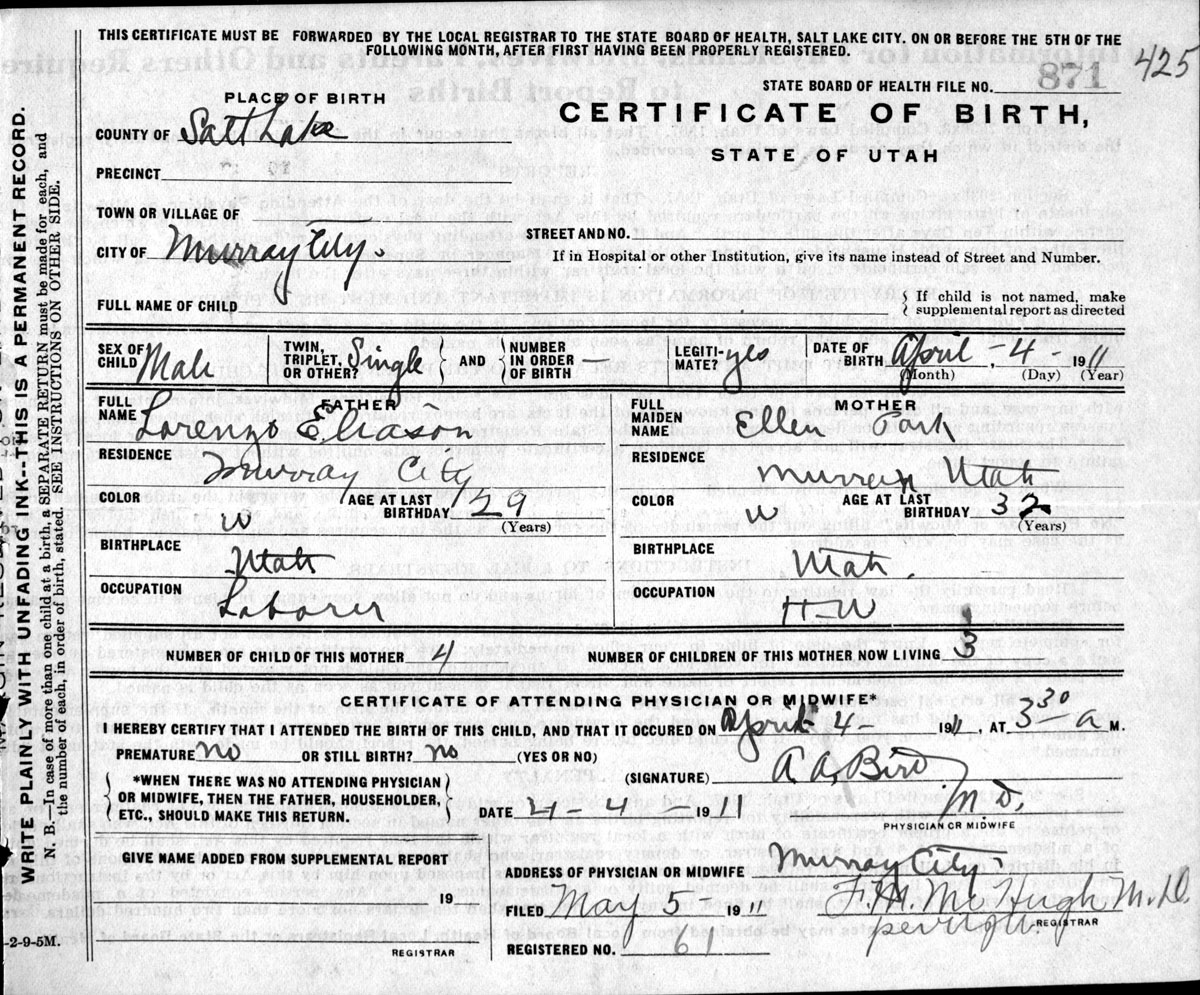 THIS CERTIFICATE MUST BE FORWARDED BY THE LOCAL REGISTRAR TO THE STATE BOARD OF HEALTH, SALT LAKE CITY, ON OR BEFORE THE 5TH OF THE
FOLLOWING MONTH, AFTER FIRST HAVING BEEN PROPERLY REGISTERED.
425
STATE BOARD OF HEALTH FILE NO. 871
PLACE OF BIRTH
CERTIFICATE OF BIRTH,
STATE OF UTAH
COUNTY OF Salt Lake
PRECINCT
TOWN OR VILLAGE OF
STREET AND NO.
CITY OF Murray City.
If in Hospital or other Institution, give its name instead of Street and Number.
FULL NAME OF CHILD
{ If child is not named, make
supplemental report as directed
SEX OF CHILD Male
TWIN, TRIPLET, OR OTHER? Single } AND { NUMBER IN ORDER OF BIRTH —
LEGITIMATE? yes
DATE OF BIRTH April - 4 - 1911
(Month) (Day) (Year)
FATHER
FULL NAME Lorenzo Eliason
RESIDENCE Murray City
COLOR W
AGE AT LAST BIRTHDAY 29
(Years)
BIRTHPLACE Utah
OCCUPATION Laborer
MOTHER
FULL MAIDEN NAME Ellen
RESIDENCE Murray Utah
COLOR W
AGE AT LAST BIRTHDAY 32
(Years)
BIRTHPLACE Utah.
OCCUPATION H-W
NUMBER OF CHILD OF THIS MOTHER 4
NUMBER OF CHILDREN OF THIS MOTHER NOW LIVING 3
CERTIFICATE OF ATTENDING PHYSICIAN OR MIDWIFE*
I HEREBY CERTIFY THAT I ATTENDED THE BIRTH OF THIS CHILD, AND THAT IT OCCURED ON April 4 1911, AT 3 30 a M.
PREMATURE no OR STILL BIRTH? no (YES OR NO)
(SIGNATURE) A. A. Bird
M D.
PHYSICIAN OR MIDWIFE
{ *WHEN THERE WAS NO ATTENDING PHYSICIAN
OR MIDWIFE, THEN THE FATHER, HOUSEHOLDER,
ETC., SHOULD MAKE THIS RETURN. }
DATE 4 - 4 1911
GIVE NAME ADDED FROM SUPPLEMENTAL REPORT
19
REGISTRAR
ADDRESS OF PHYSICIAN OR MIDWIFE Murray City
FILED May 5 1911
F. M. McHugh M.D.
REGISTRAR
REGISTERED NO. 61
WRITE PLAINLY WITH UNFADING INK--THIS IS A PERMANENT RECORD.
N. B.—In case of more than one child at a birth, a SEPARATE RETURN must be made for each, and
the number of each, in order of birth, stated. SEE INSTRUCTIONS ON OTHER SIDE.
-2-9-5M.